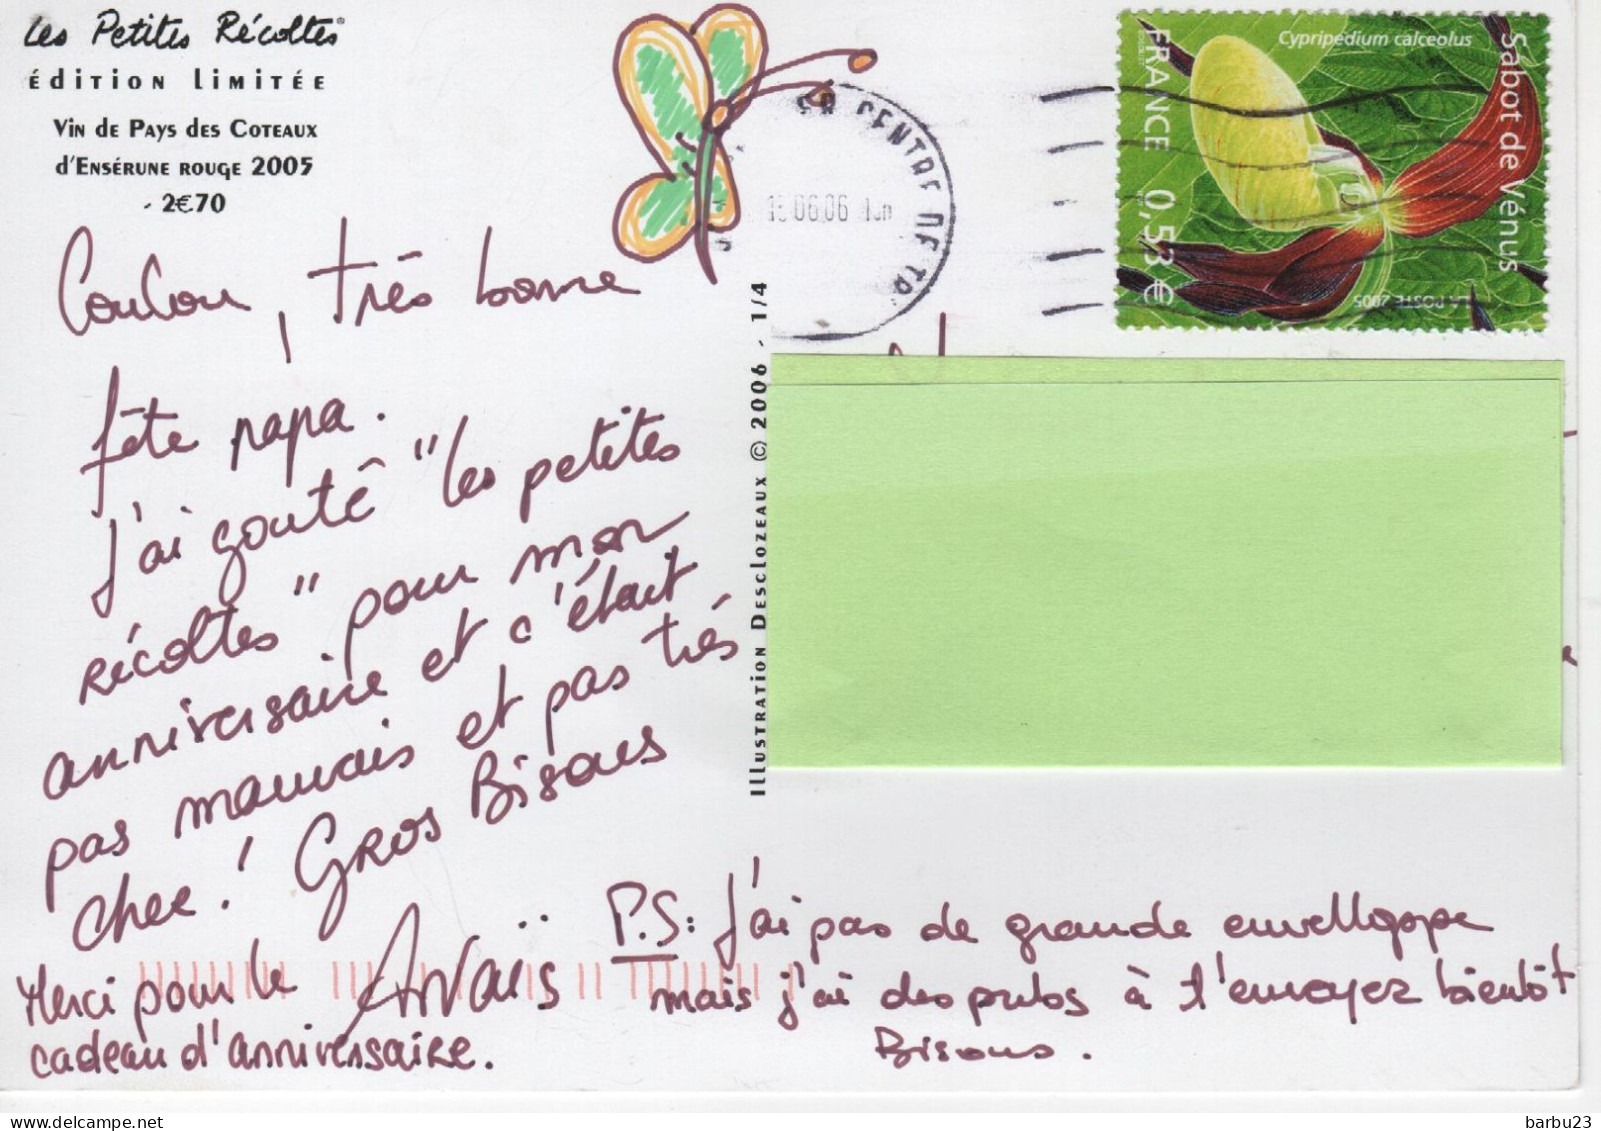 Les Petites Récoltes®
édition limitée
Vin de Pays des Coteaux
d'Ensérune rouge 2005
- 2€70
Coucou, très bonne
fête papa.
J'ai gouté "les petites
récoltes" pour mon
anniversaire et c'était
pas mauvais et pas très
cher! Gros Bisous
Anaïs
Merci pour le
cadeau d'anniversaire.
P.S: J'ai pas de grande envelloppe
mais j'ai des pubs à t'envoyez bientôt
Bisous.
Illustration Desclozeaux © 2006 - 1/4
CENTRE DE TR
06.06
Cypripedium calceolus
Sabot de Vénus
FRANCE 0,53 €
LA POSTE 2005
barbu23